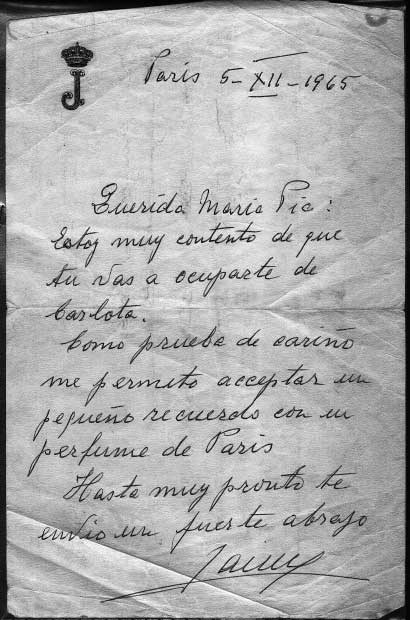 J
Paris 5-XII-1965
Querida Maria Pia:
Estoy muy contento de que
tu vas a ocuparte de
Carlota.
Como prueba de cariño
me permito acceptar un
pequeño recuerdo con un
perfume de Paris
Hasta muy pronto te
envio un fuerte abrazo
Jaime